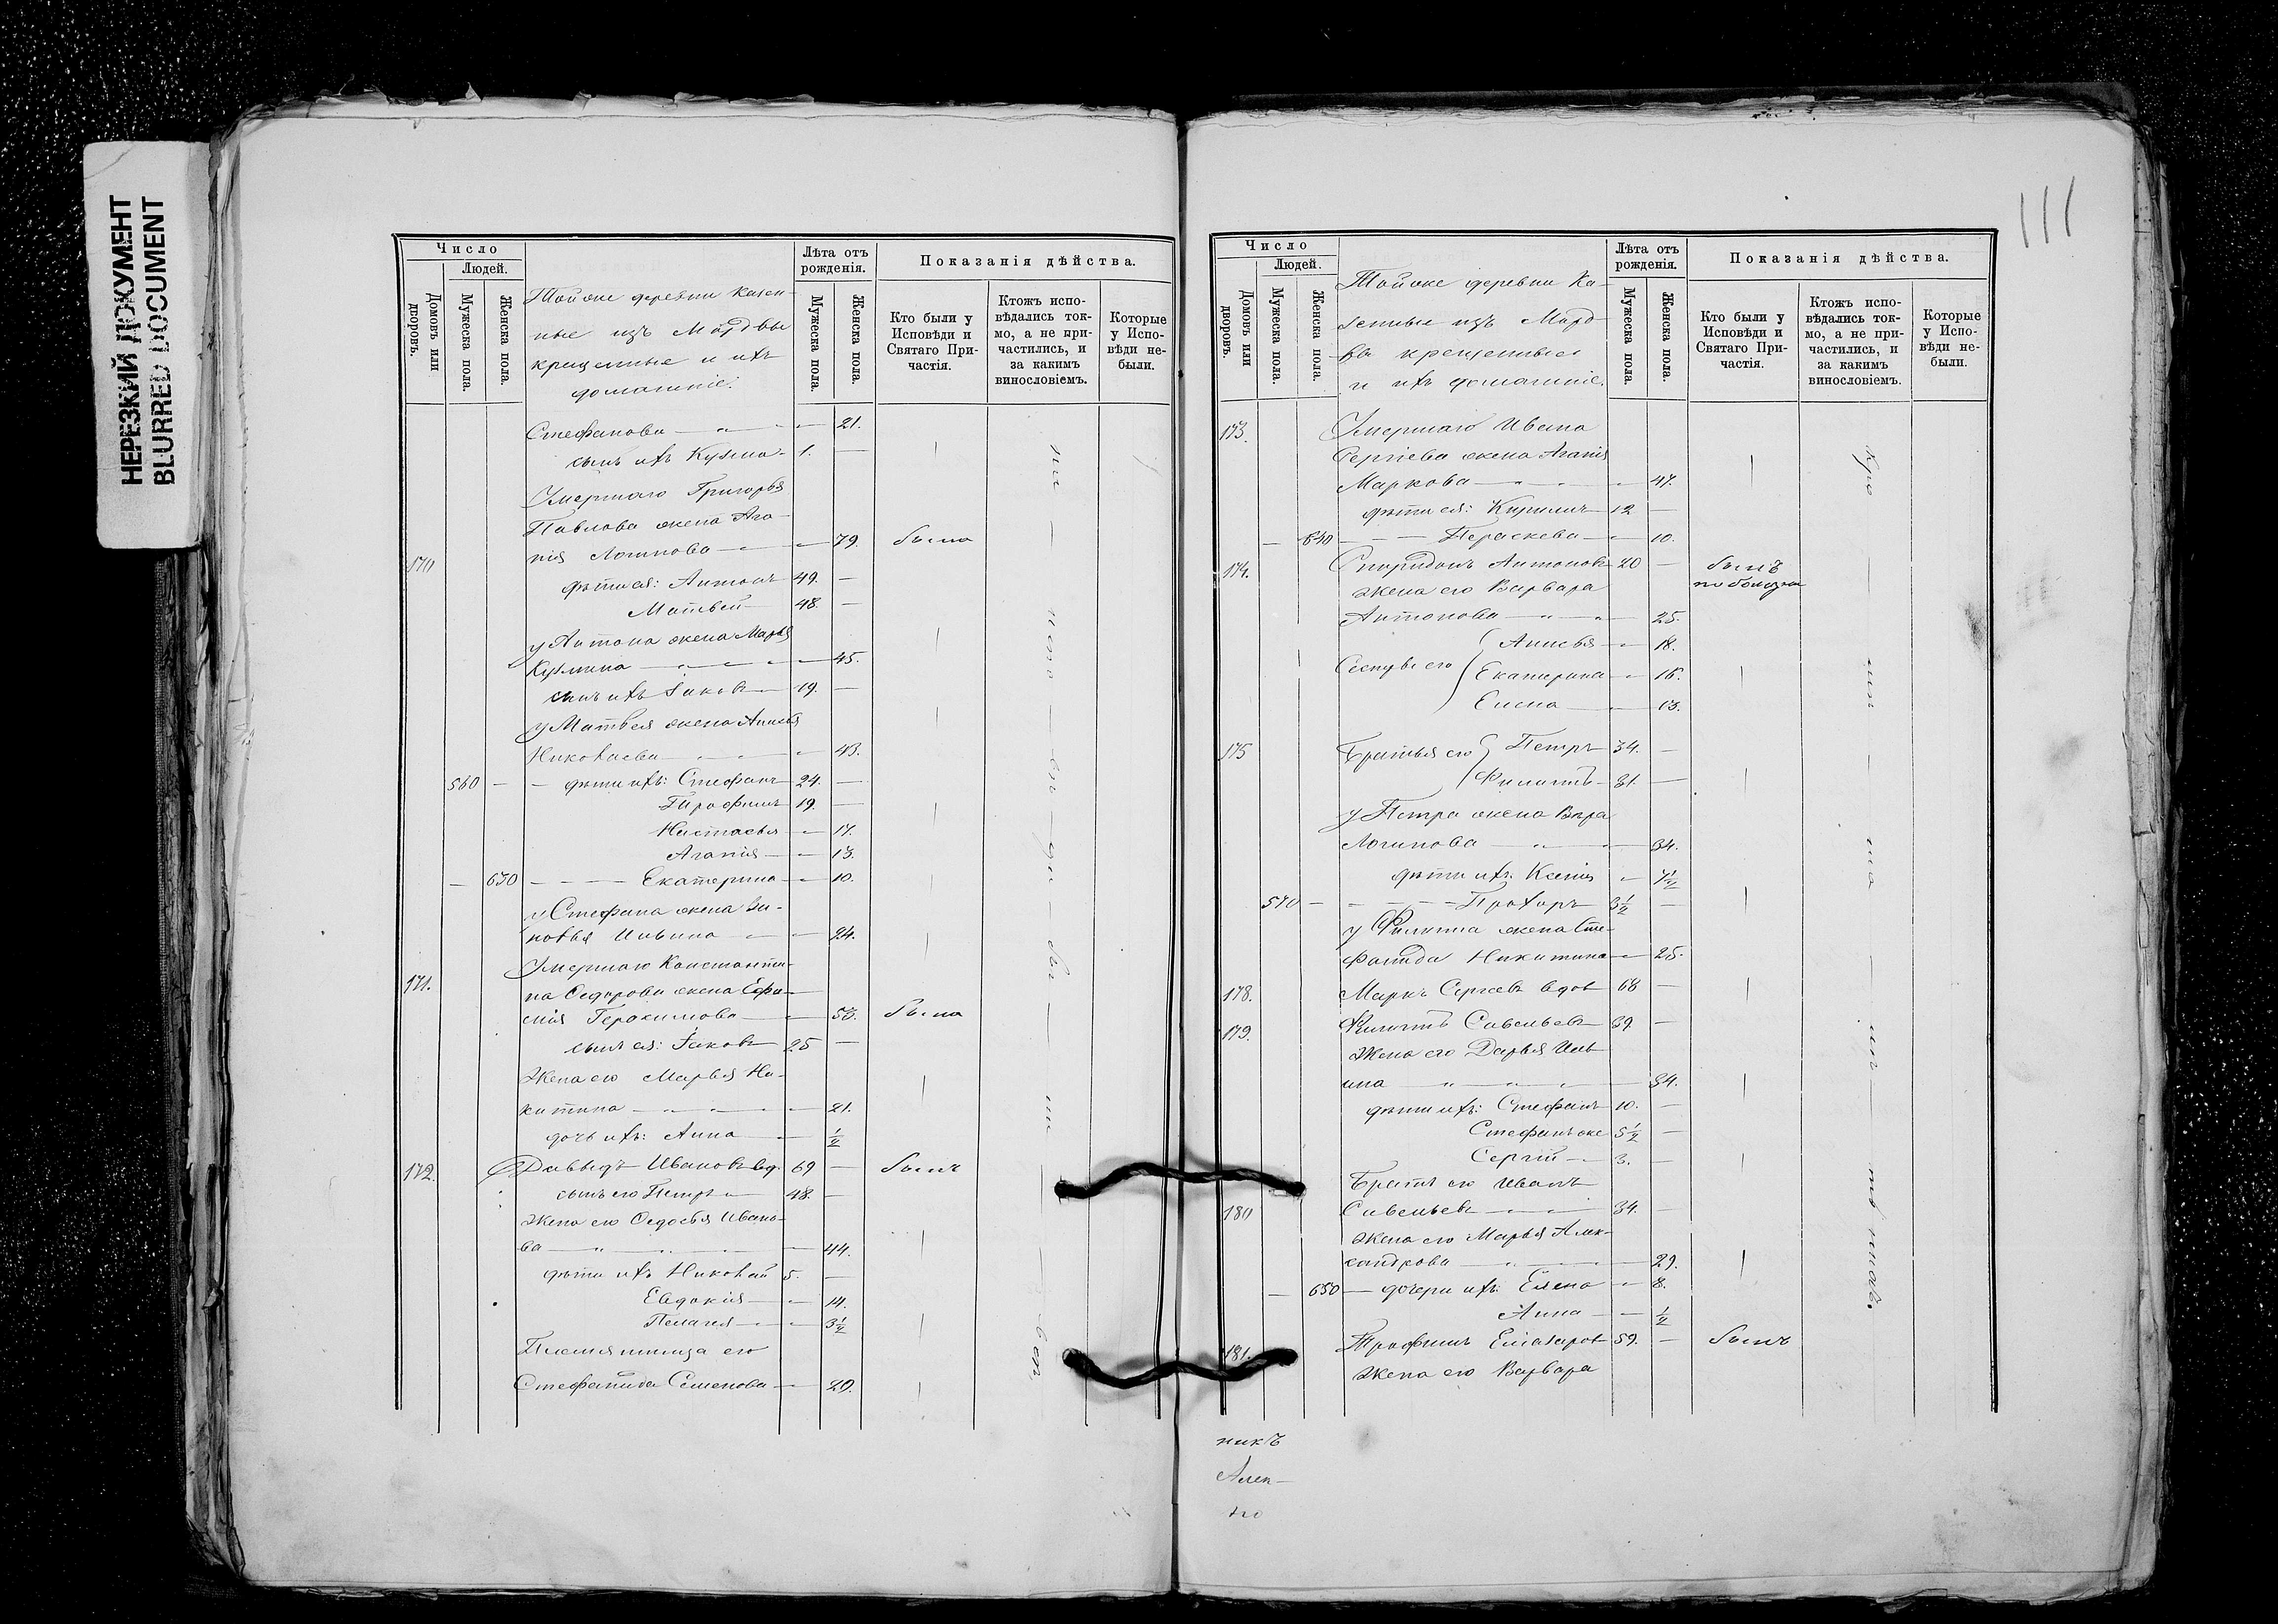 НЕРЕЗКИЙ ДОКУМЕНТ
BLURRED DOCUMENT
Число
Людей.
Домовъ или дворовъ.
Мужеска пола.
Женска пола.
Тойже деревни казен-
ные изъ Мордвы
крещенные и ихъ
домашніе.
Лѣта отъ рожденія.
Мужеска пола.
Женска пола.
Показанія дѣйства.
Кто были у Исповѣди и Святаго При-частія.
Ктожъ испо-вѣдались ток-мо, а не при-частились, и за какимъ винословіемъ.
Которые у Испо-вѣди не-были.
Стефанова — 21.
сынъ ихъ Кузма 1. —
Умершаго Григорья
Павлова жена Ага-
170 пія Логинова — 79. была
дѣти ея: Антонъ 49. —
Матвей 48. —
у Антона жена Марья
Кузмина — 45.
сынъ ихъ Іаковъ 19. —
у Матвея жена Анисья
Николаева — 43.
560 — — дѣти ихъ: Стефанъ 24. —
Трофимъ 19. —
Настасья — 17.
Агапія — 13.
— 630 — — — Екатерина — 10.
у Стефана жена Зи-
новья Ильина — 24.
Умершаго Константи-
171. на Федорова жена Ефи-
мія Герасимова — 53. была
сынъ ея: Іаковъ 25 —
Жена его Марья Ни-
китина — 21.
дочь ихъ: Анна — 1/2
172. Давыдъ Ивановъ вд. 69 — былъ
сынъ его Петръ 48. —
Жена его Федосья Ивано-
ва — 44.
дѣти ихъ Николай 5. —
Евдокія — 14.
Пелагея — 3 1/2
Племянница его
Стефанида Семенова — 20.
111
Число
Людей.
Домовъ или дворовъ.
Мужеска пола.
Женска пола.
Тойже деревни Ка-
зенные изъ Морд-
вы крещенные
и ихъ домашніе.
Лѣта отъ рожденія.
Мужеска пола.
Женска пола.
Показанія дѣйства.
Кто были у Исповѣди и Святаго При-частія.
Ктожъ испо-вѣдались ток-мо, а не при-частились, и за какимъ винословіемъ.
Которые у Испо-вѣди не-были.
173. Умершаго Ивана
Сергіева жена Агапія
Маркова — 47.
дѣти ея: Кирилъ 12 —
— 640 — — Параскева — 10.
174. Спиридонъ Антоновъ 20 — былъ
Жена его Варвара по болезни
Антонова — 25.
Анисья — 18.
Сестры его Екатерина — 16.
Елена — 13.
175 Братья его Петръ 34. —
Филиппъ 31. —
у Петра жена Вѣра
Логинова — 34.
дѣти ихъ: Ксенія — 7 1/2
570 — — — Прохоръ 3 1/2 —
у Филиппа жена Сте-
фанида Никитина — 25.
178. Маркъ Сергѣевъ вдов 68 —
179. Филиппъ Савельевъ 39 —
Жена его Дарья Иль-
ина — 34.
дѣти ихъ: Стефанъ 10. —
Стефанъ же 5 1/2 —
Сергій 3. —
Братъ его Иванъ
180 Савельевъ 34. —
Жена его Марья Алек-
сандрова — 29.
— 650 — дочери ихъ: Елена — 8.
Анна — 1/2
181. Трофимъ Елиазаров 59. — былъ
Жена его Варвара
никъ
Алек-